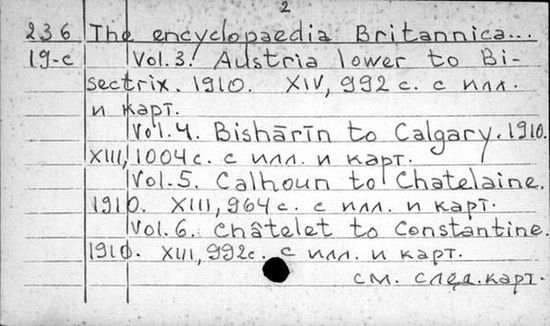 2
236 The encyclopaedia Britannica...
19-c Vol.3. Austria lower to Bi-
sectrix. 1910. XIV, 992 с. с илл.
и карт.
Vol.4. Bishārīn to Calgary. 1910.
XIII, 1004 с. с илл. и карт.
Vol.5. Calhoun to Chatelaine.
1910. XIII, 964 с. с илл. и карт.
Vol.6. Châtelet to Constantine.
1910. XIII, 992 с. с илл. и карт.
см. след. карт.